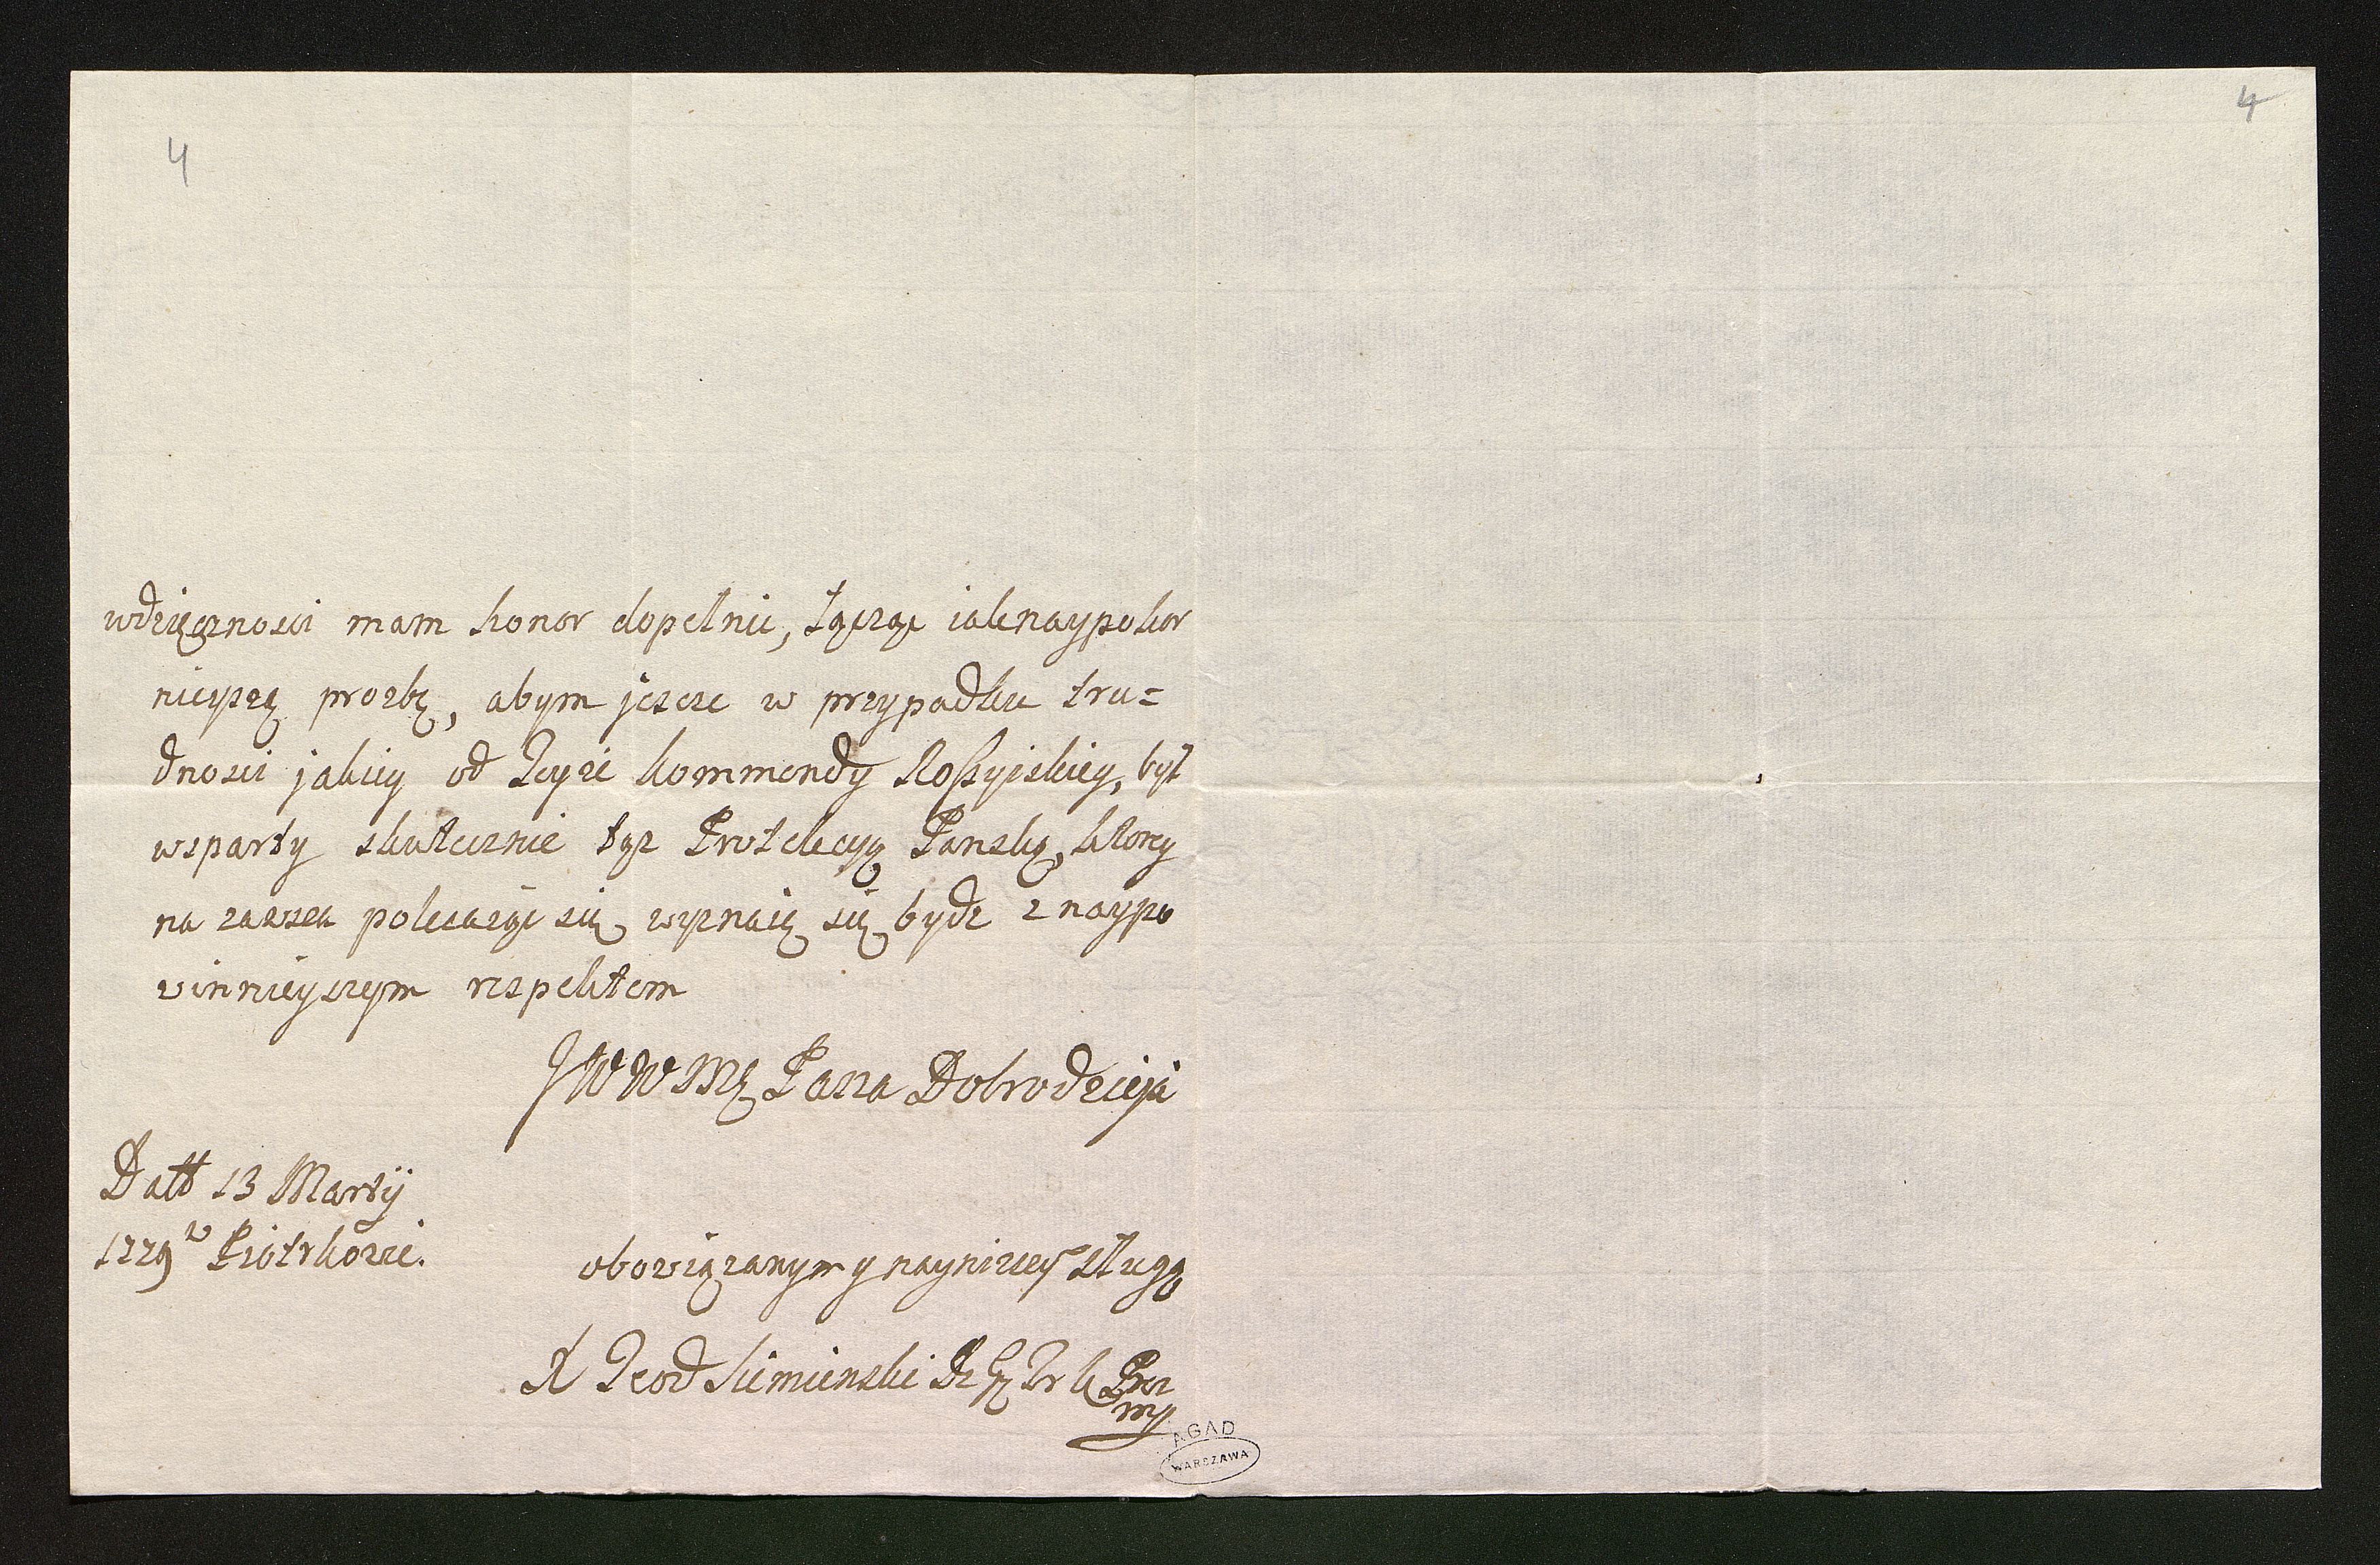 4
4
wdzięcznosci mam honor dopełnic, łącząc iaknaypokor
nieyszą prozbę, abym jeszcze w przypadku tru=
dnosci jakiey od teyże kommendy Roßyiskiey, był
wsparty skutecznie tąż Protekcyą Panską, ktorey
na zawsze polecając się, wyznaię się bydz z naypo
winnieyszym respektem
JWWMę Pana Dobrodzieja
Datt 13 Martij
1779 w Piotrkowie.
obowiązanym y nayniższym sługą
X Teod Siemienski
AGAD
WARSZAWA